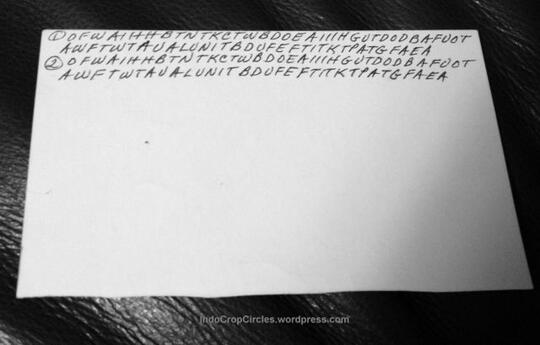 ① OFWAIHHBTNTKCTWBDOEAIIIHGUTDODBAFUOT
AWFTWTAUALUNITBDUFEFTITKTPATGFAEA
② OFWAIHHBTNTKCTWBDOEAIIIHGUTDODBAFUOT
AWFTWTAUALUNITBDUFEFTITKTPATGFAEA
© IndoCropCircles.wordpress.com